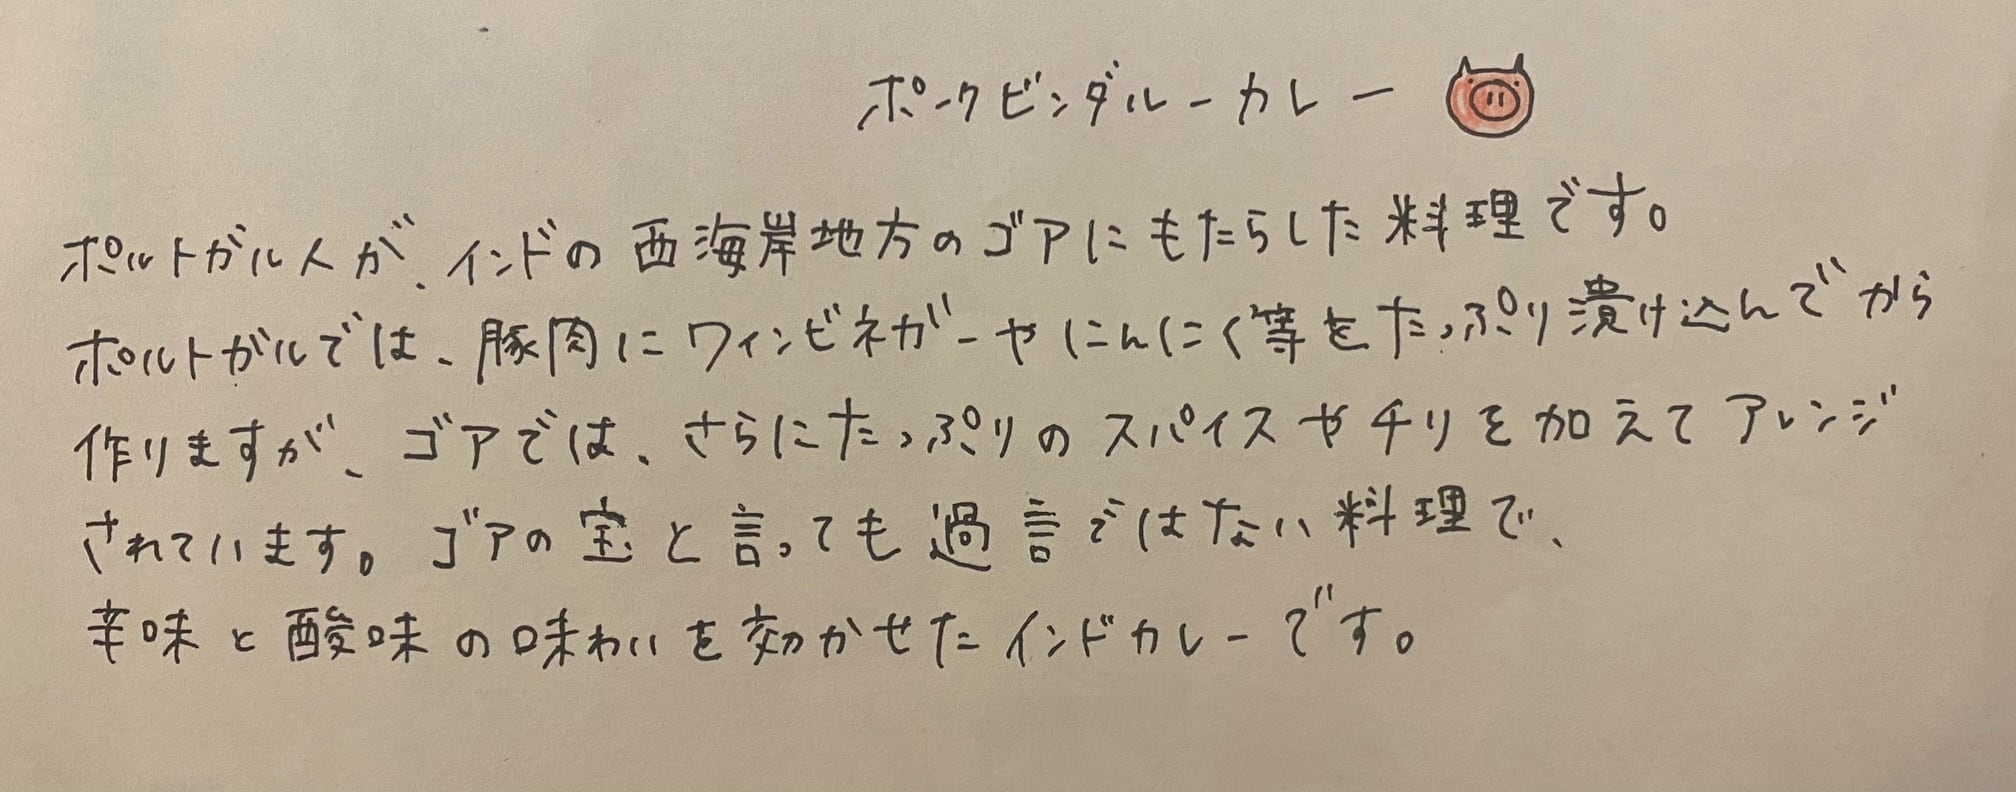 ポークビンダルーカレー
ポルトガル人が、インドの西海岸地方のゴアにもたらした料理です。
ポルトガルでは、豚肉にワインビネガーやにんにく等をたっぷり漬け込んでから
作りますが、ゴアでは、さらにたっぷりのスパイスやチリを加えてアレンジ
されています。ゴアの宝と言っても過言ではない料理で、
辛味と酸味の味わいを効かせたインドカレーです。